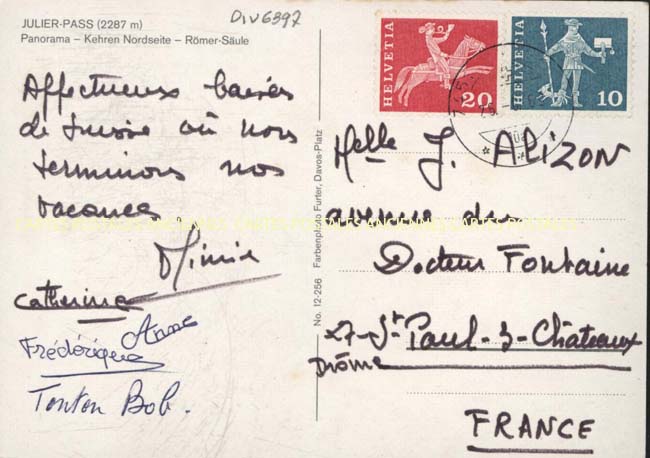 JULIER-PASS (2287 m)
Panorama – Kehren Nordseite – Römer-Säule
DIV6397
Affectueux baisers
de Suisse où nous
terminons nos
vacances
Mimie
Catherine
Anne
Frédérique
Tonton Bob.
No. 12-256 Farbenphoto Furter, Davos-Platz
HELVETIA
20
HELVETIA
10
Melle J. ALIZON
avenue du
Docteur Fontaine
27-St Paul-3-Châteaux
Drôme
FRANCE